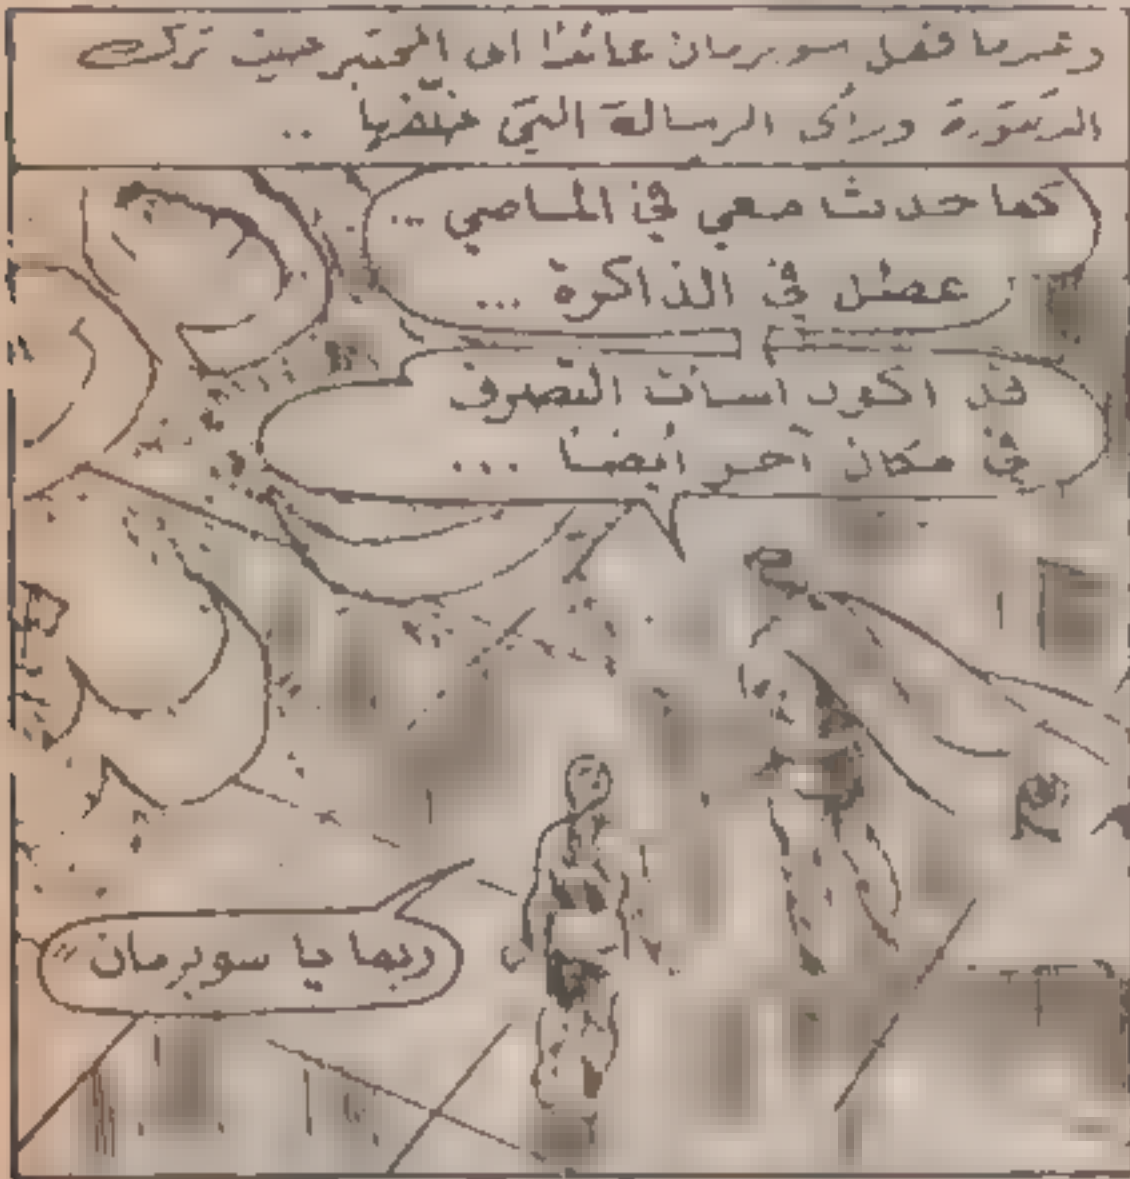 وعندما قفل سوبرمان عائدًا الى المختبر حيث ترك
ورأى الرسالة التي خلفها ..
كما حدث معي في الماضي ...
عطل في الذاكرة ...
قد اكون اسأت التصرف
في مكان آخر أيضا ...
ربما يا سوبرمان